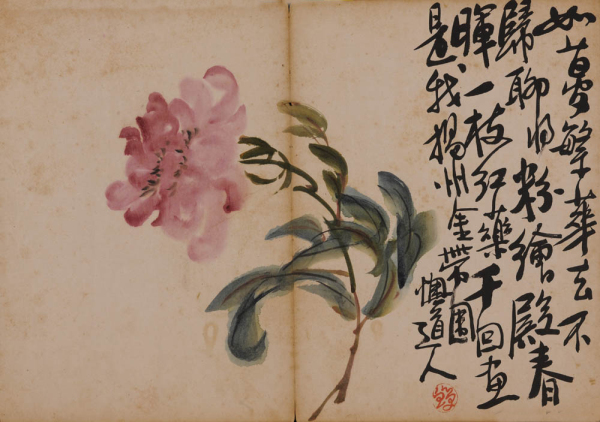 如夢繁華去不
歸聊將粉繪殿春
暉一枝紅藥千回畫
是我揚州金帶圍
懊道人